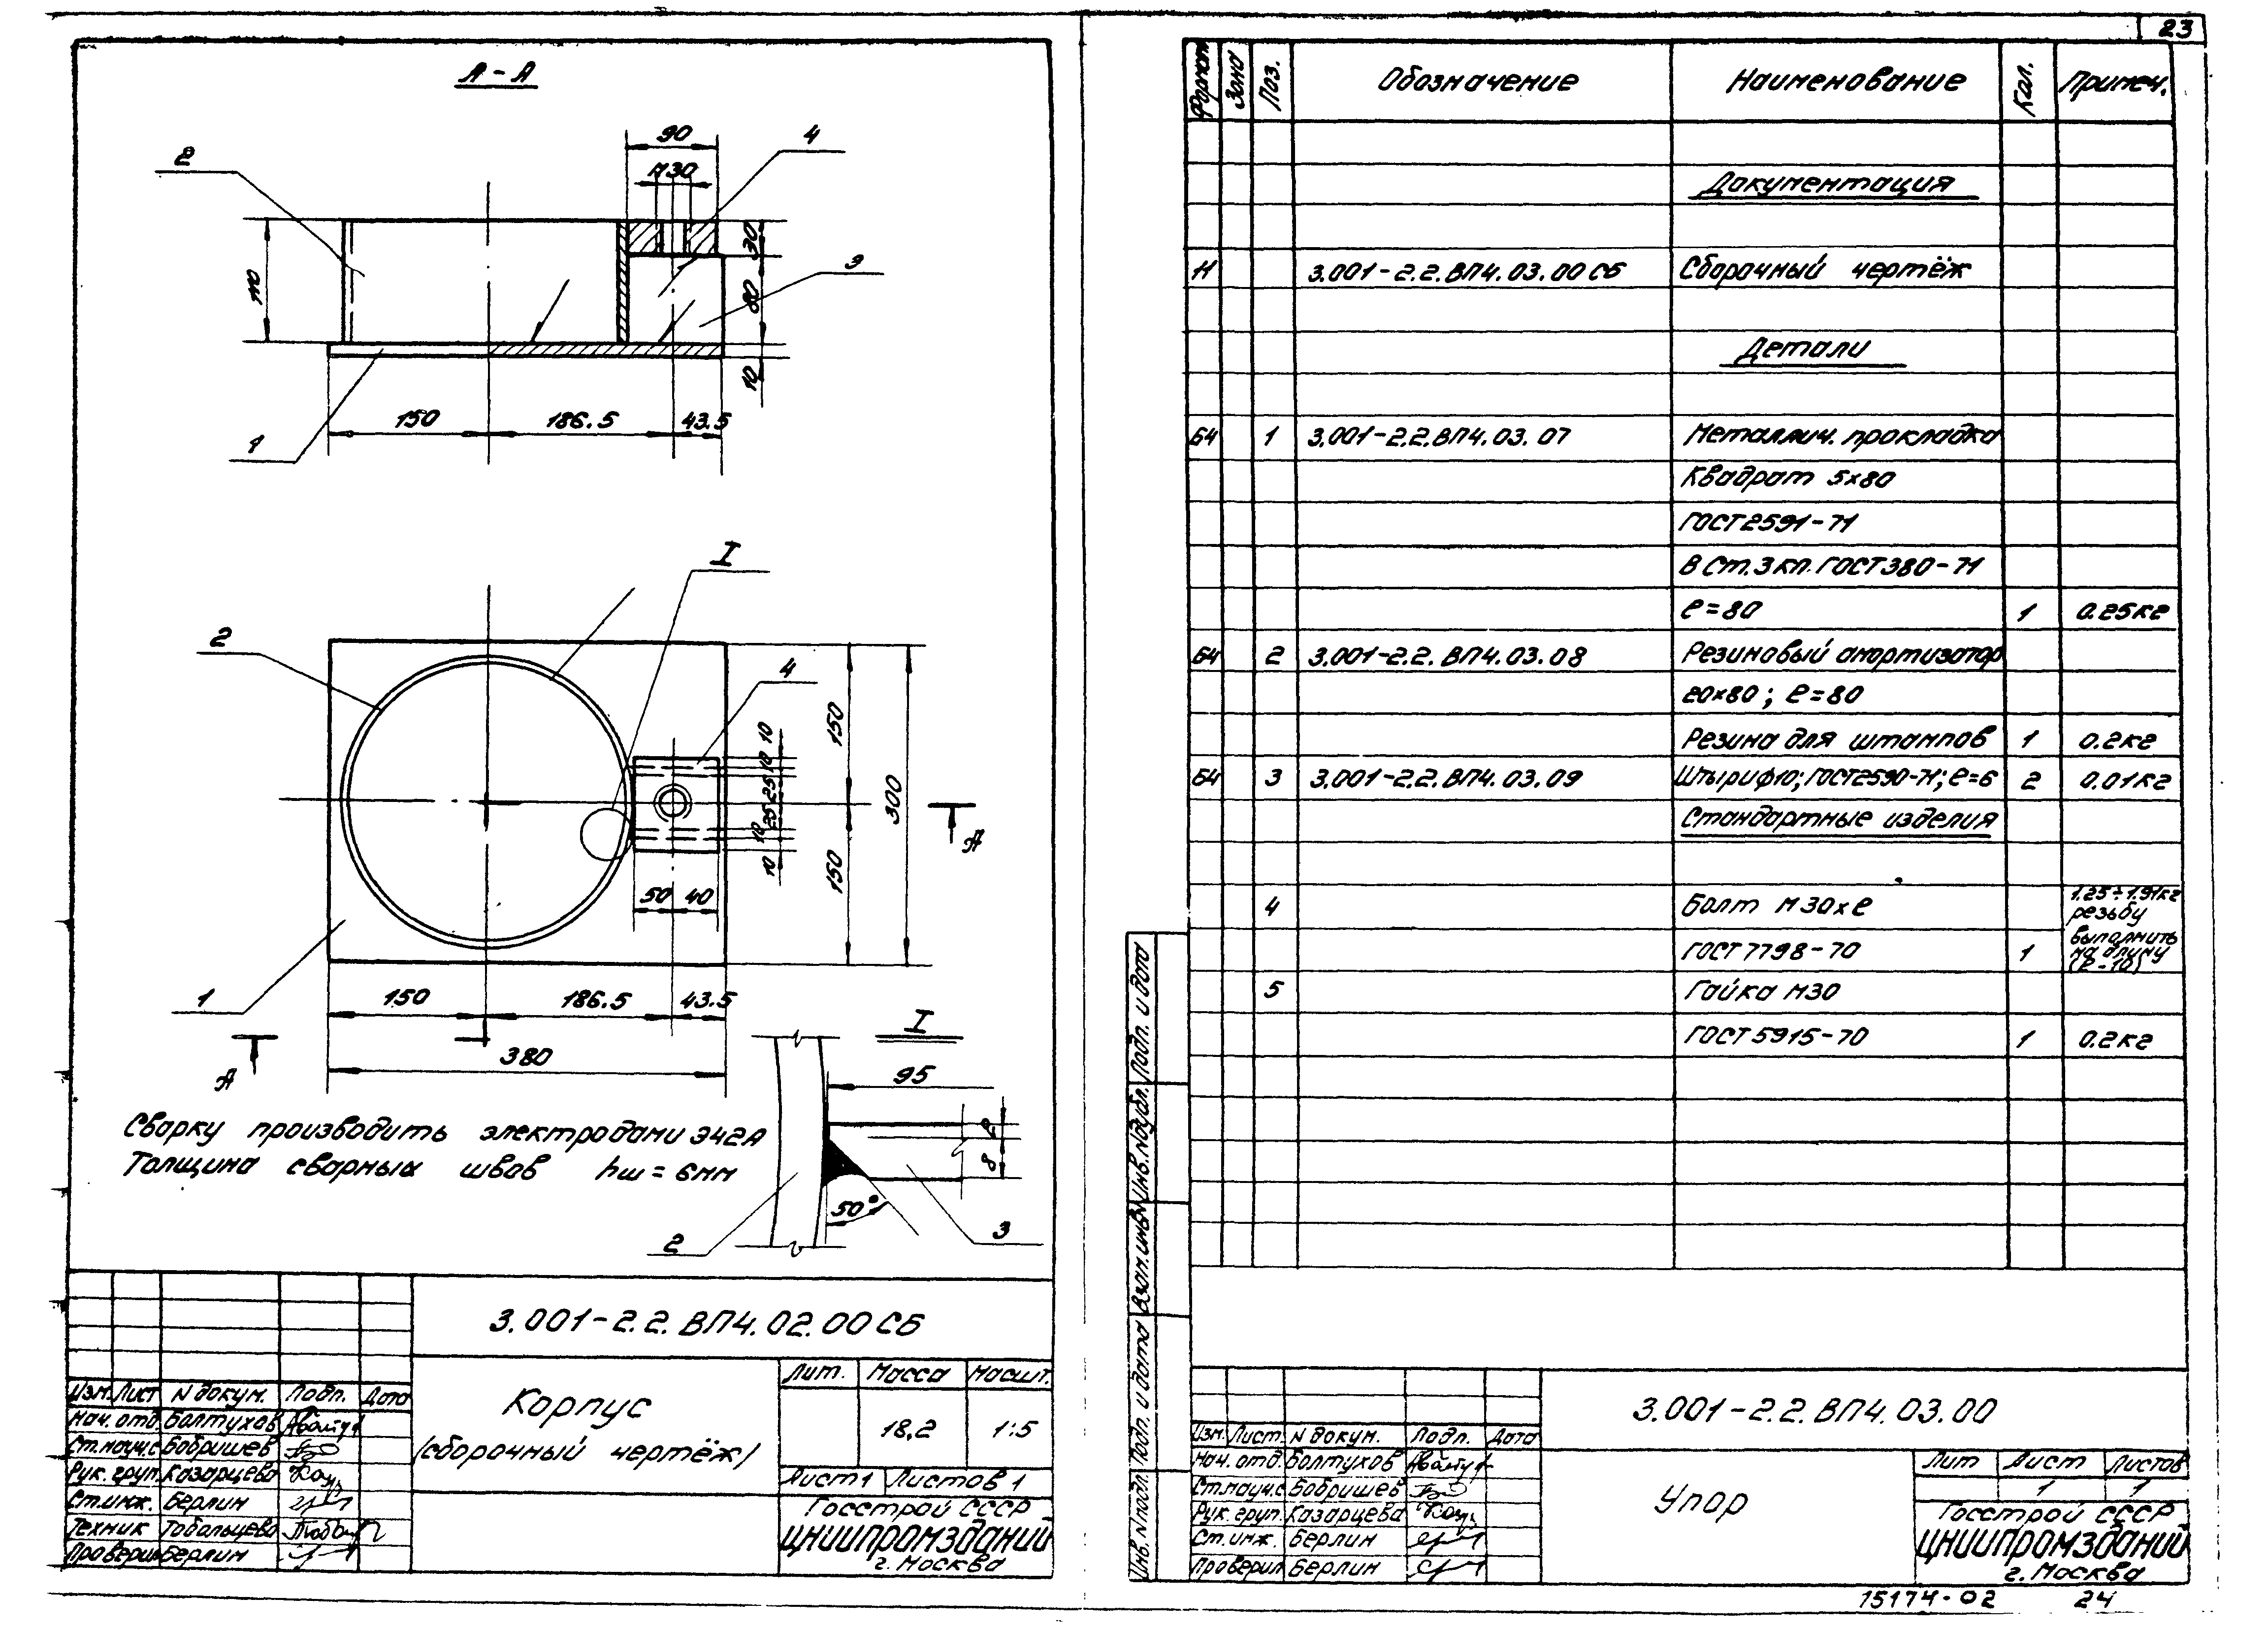 23
А - А
90
4
М30
2
110
30
3
80
10
150
186.5
43.5
1
I
2
4
10
10
25
25
10
10
150
150
300
А
50
40
1
150
186.5
43.5
380
А
I
95
8
50°
2
3
Сварку производить электродами Э42А
Толщина сварных швов hш = 6мм
3.001-2.2.ВП4.02.00 СБ
Корпус
(сборочный чертёж)
Лит. Масса Масшт.
18,2 1:5
Лист 1 Листов 1
Госстрой СССР
ЦНИИПРОМЗДАНИЙ
г. Москва
Изм. Лист N докум. Подп. Дата
Нач. отд. Болтухов
Ст.науч.с Бобришев
Рук. груп. Казарцева
Ст.инж. Берлин
Техник Тобольцева
Проверил Берлин
Формат Зона Поз. Обозначение Наименование Кол. Примеч.
Документация
11 3.001-2.2.ВП4.03.00 СБ Сборочный чертёж
Детали
Б4 1 3.001-2.2.ВП4.03.07 Металлич. прокладка
Квадрат 5х80
ГОСТ 2591-71
В Ст.3 кп. ГОСТ 380-71
ℓ=80 1 0.25кг
Б4 2 3.001-2.2.ВП4.03.08 Резиновый амортизатор
20х80; ℓ=80
Резина для штампов 1 0.2кг
Б4 3 3.001-2.2.ВП4.03.09 Штыри ф10; ГОСТ2590-71; ℓ=6 2 0.01кг
Стандартные изделия
4 Болт М30хℓ 1.25÷1.91кг
резьбу
ГОСТ 7798-70 1 выполнить
на длину
(ℓ-10)
5 Гайка М30
ГОСТ 5915-70 1 0.2кг
Подп. и дата
Инв. N дубл.
Взам. инв. N
Подп. и дата
Инв. N подл.
3.001-2.2.ВП4.03.00
Упор
Лит Лист Листов
1 1
Госстрой СССР
ЦНИИПРОМЗДАНИЙ
г. Москва
Изм. Лист N докум. Подп. Дата
Нач. отд. Болтухов
Ст.науч.с Бобришев
Рук. груп. Казарцева
Ст.инж. Берлин
Проверил Берлин
15174-02 24